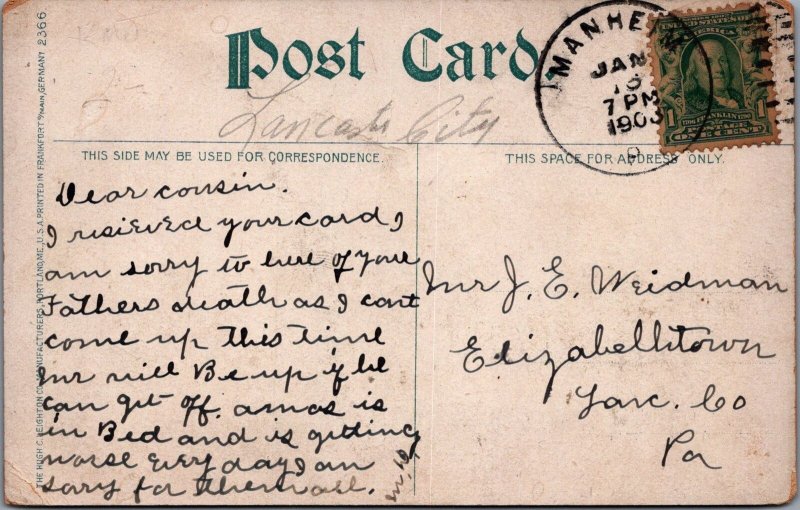 Post Card
MANHEIM
JAN
7 PM
190
1
ONE CENT
Lancaster City
THIS SIDE MAY BE USED FOR CORRESPONDENCE.
THIS SPACE FOR ADDRESS ONLY.
THE HUGH C. LEIGHTON CO., MANUFACTURERS, PORTLAND, ME., U.S.A. PRINTED IN FRANKFORT o/MAIN, GERMANY 2366
Dear cousin.
I resieved your card, I
am sorry to here of your
Fathers death as I cant
come up this time
mr will Be up if he
can get off. amos is
in Bed and is getting
worse every day, I am
sory for them all.
Mr J. E. Weidman
Elizabethtown
Lanc. Co
Pa